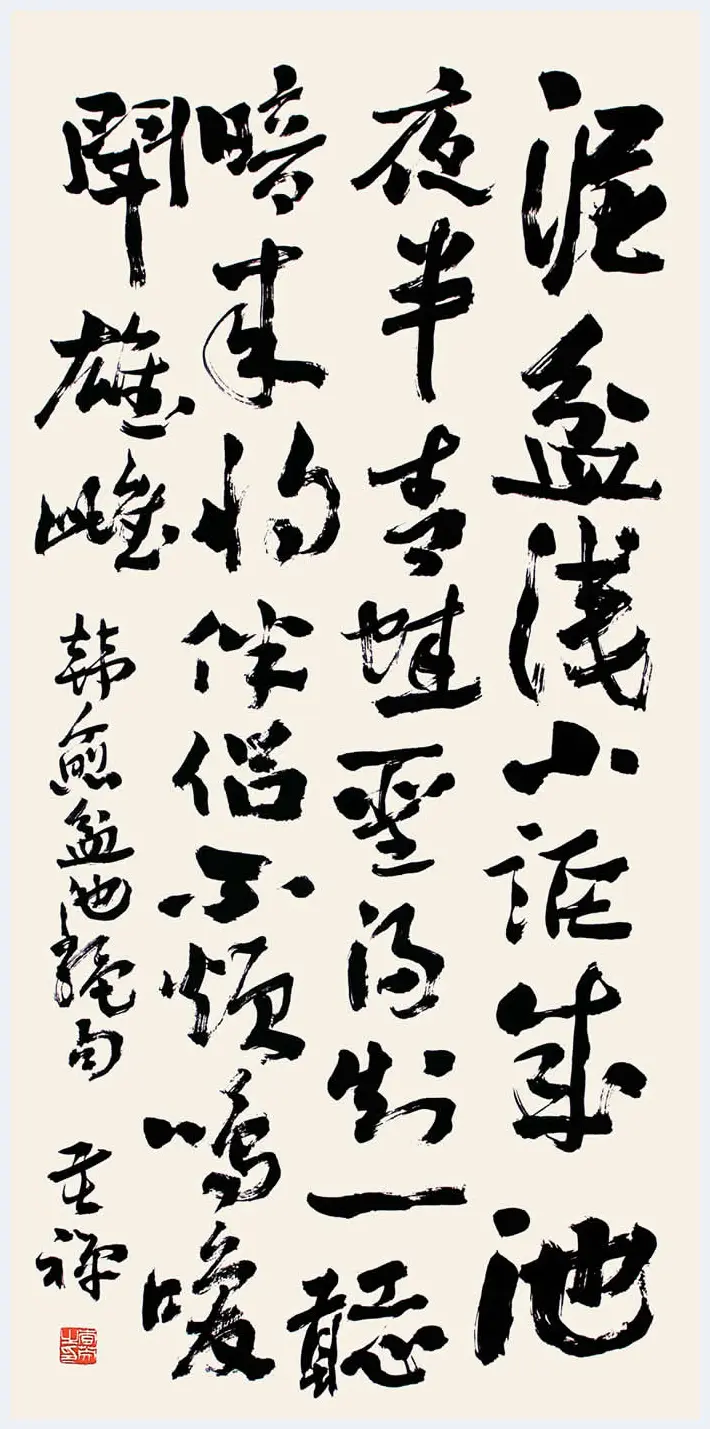 泥盆淺小詎成池
夜半青蛙聖得知一聽
暗来将伴侶不煩鳴喚
鬪雄雌
韓愈盆池絕句
禪